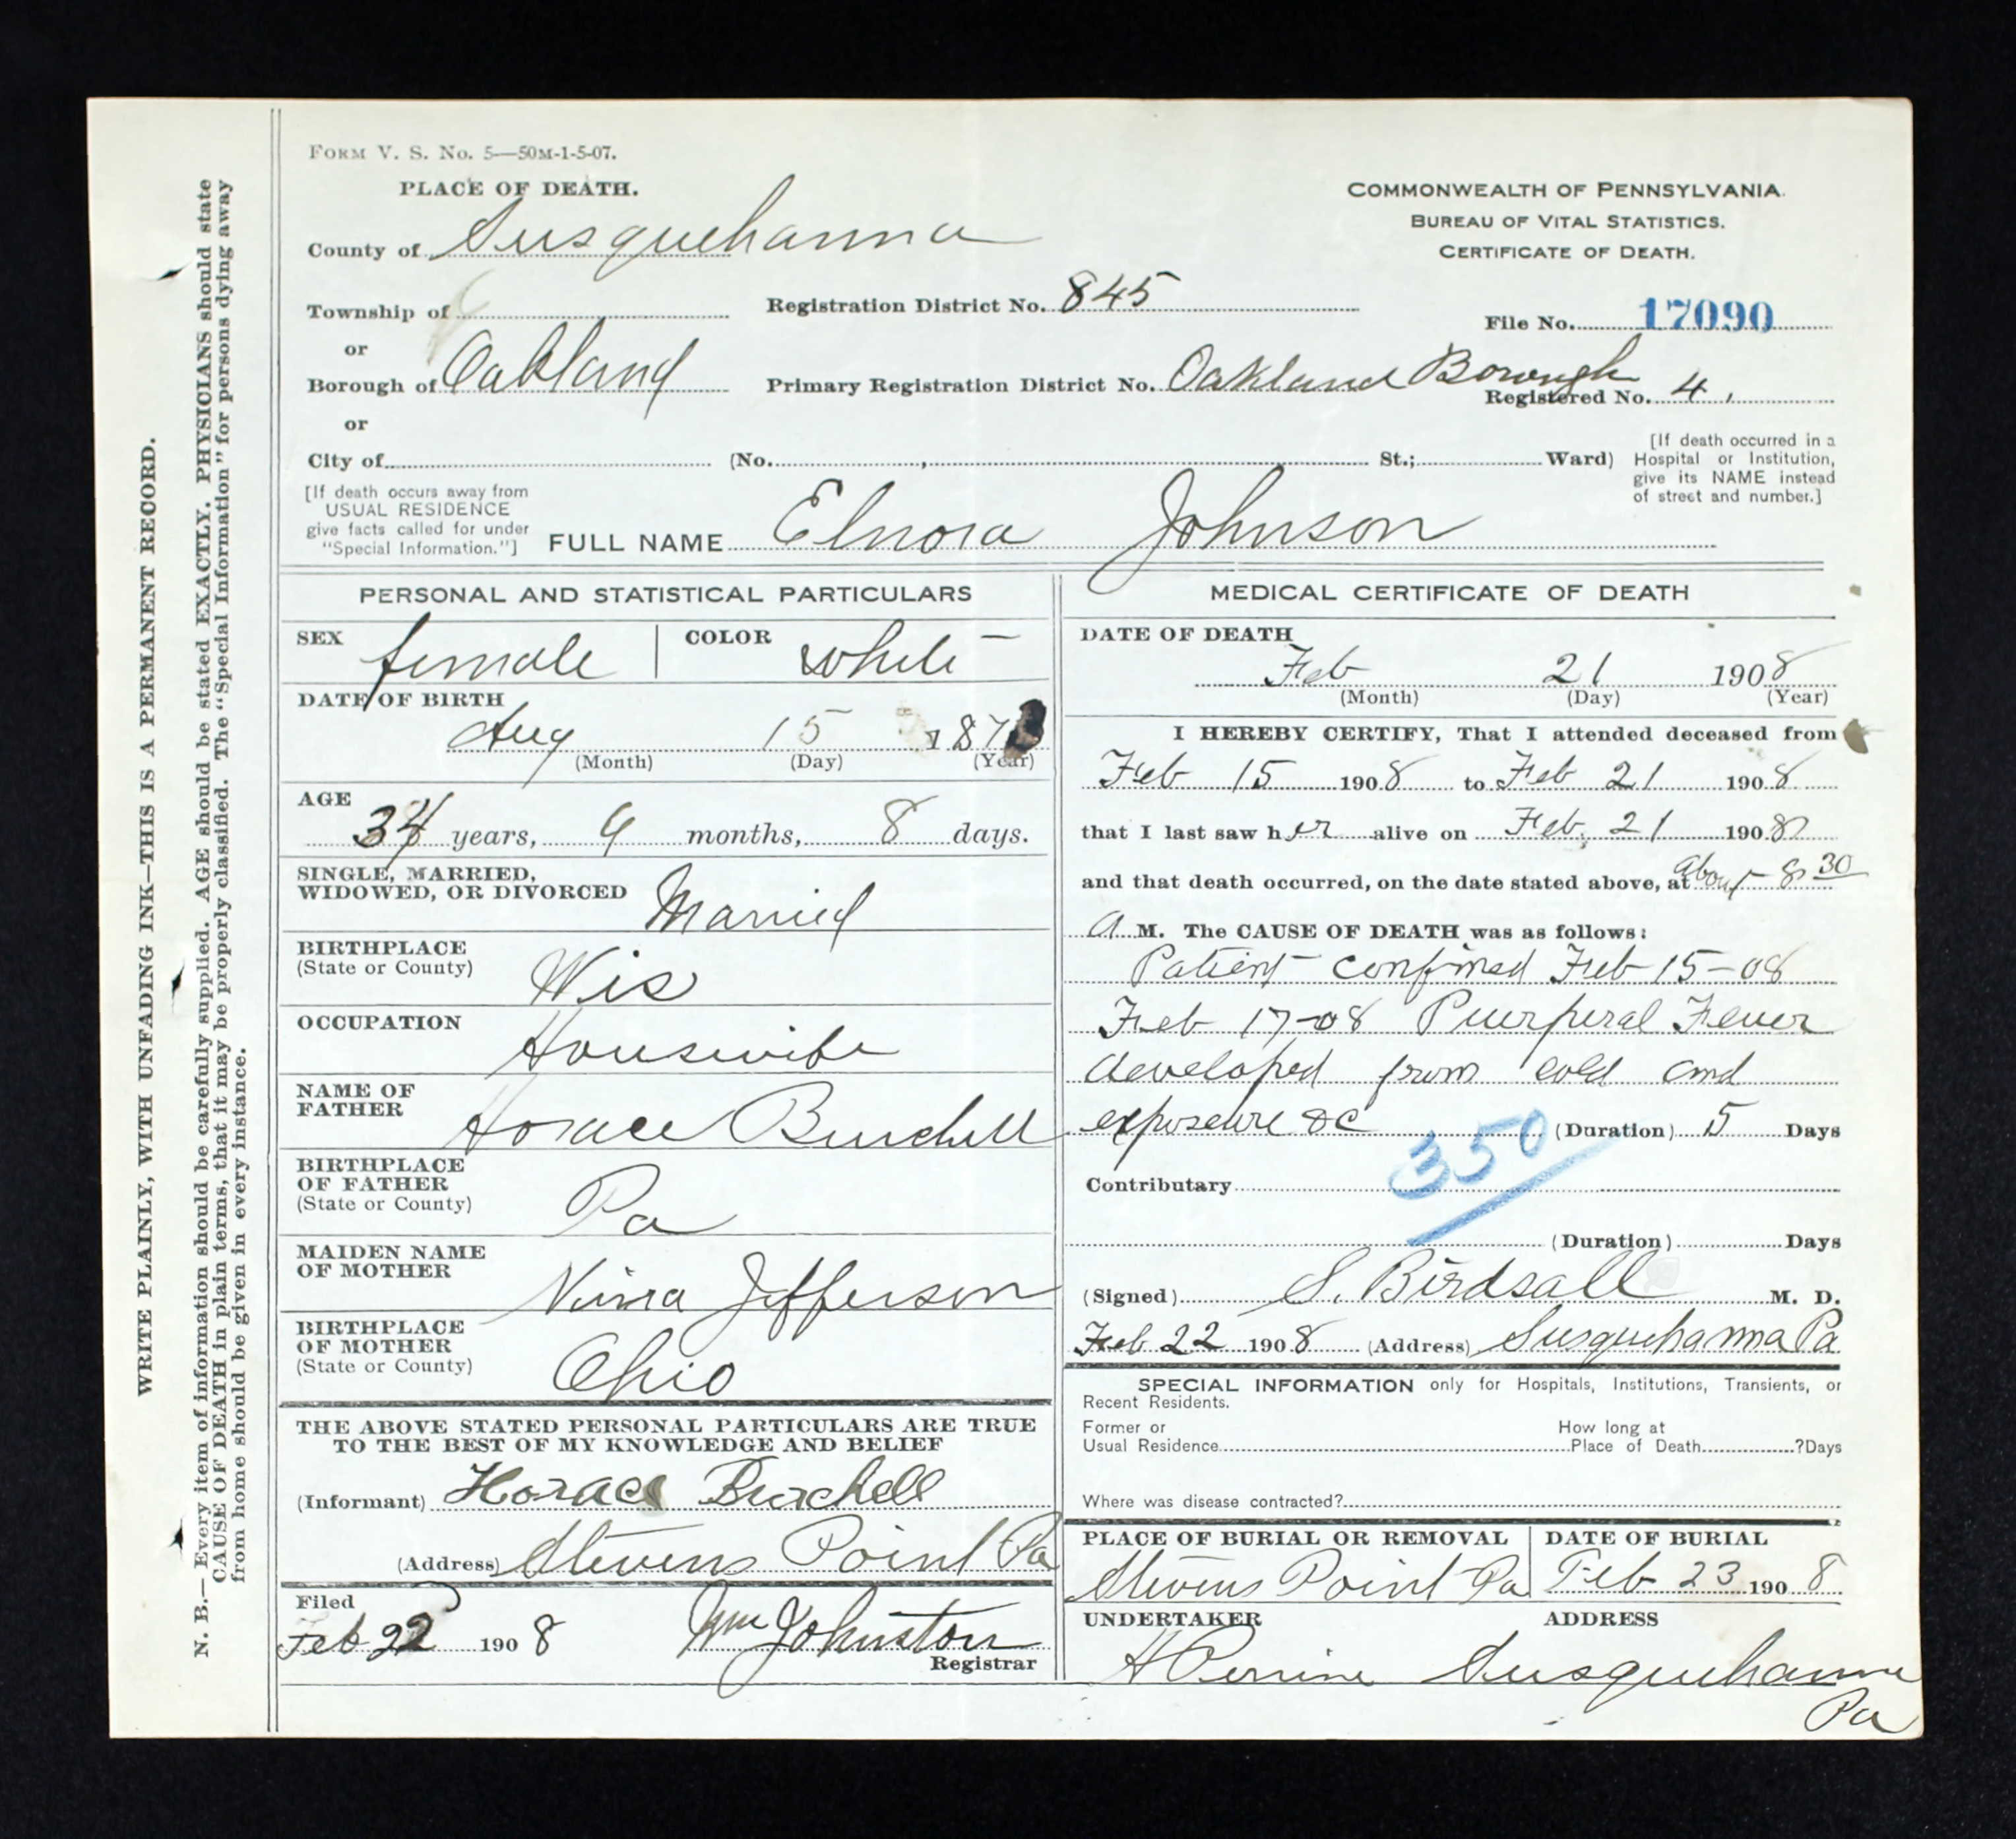 FORM V. S. No. 5—50M-1-5-07.
PLACE OF DEATH.
COMMONWEALTH OF PENNSYLVANIA.
BUREAU OF VITAL STATISTICS.
CERTIFICATE OF DEATH.
County of Susquehanna
Township of
Registration District No. 845
File No. 17090
or
Borough of Oakland
Primary Registration District No. Oakland Borough
Registered No. 4
or
City of (No. , St.; Ward)
[If death occurred in a
Hospital or Institution,
give its NAME instead
of street and number.]
[If death occurs away from
USUAL RESIDENCE
give facts called for under
"Special Information."]
FULL NAME Elnora Johnson
PERSONAL AND STATISTICAL PARTICULARS
SEX female COLOR white
DATE OF BIRTH
Aug 15 187
(Month) (Day) (Year)
AGE
34 years, 9 months, 8 days.
SINGLE, MARRIED,
WIDOWED, OR DIVORCED Married
BIRTHPLACE
(State or County) Wis
OCCUPATION
Housewife
NAME OF
FATHER Horace Burchell
BIRTHPLACE
OF FATHER
(State or County) Pa
MAIDEN NAME
OF MOTHER Jefferson
BIRTHPLACE
OF MOTHER
(State or County) Ohio
THE ABOVE STATED PERSONAL PARTICULARS ARE TRUE
TO THE BEST OF MY KNOWLEDGE AND BELIEF
(Informant) Horace Burchell
(Address) Stevens Point Pa
Filed
Feb 22 1908 Wm Johnston
Registrar
MEDICAL CERTIFICATE OF DEATH
DATE OF DEATH
Feb 21 1908
(Month) (Day) (Year)
I HEREBY CERTIFY, That I attended deceased from
Feb 15 1908 to Feb 21 1908
that I last saw her alive on Feb. 21 1908
and that death occurred, on the date stated above, at about 8 30
A M. The CAUSE OF DEATH was as follows:
Patient confined Feb 15-08
Feb 17-08 Puerperal Fever
developed from cold and
exposure &c (Duration) 5 Days
350
Contributary
(Duration) Days
(Signed) S. Birdsall M. D.
Feb 22 1908 (Address) Susquehanna Pa
SPECIAL INFORMATION only for Hospitals, Institutions, Transients, or
Recent Residents.
Former or
Usual Residence
How long at
Place of Death ?Days
Where was disease contracted?
PLACE OF BURIAL OR REMOVAL
Stevens Point Pa
DATE OF BURIAL
Feb 23 1908
UNDERTAKER ADDRESS
H Perrine Susquehanna
Pa
WRITE PLAINLY, WITH UNFADING INK—THIS IS A PERMANENT RECORD.
N. B.—Every item of information should be carefully supplied. AGE should be stated EXACTLY. PHYSICIANS should state
CAUSE OF DEATH in plain terms, that it may be properly classified. The "Special Information" for persons dying away
from home should be given in every instance.